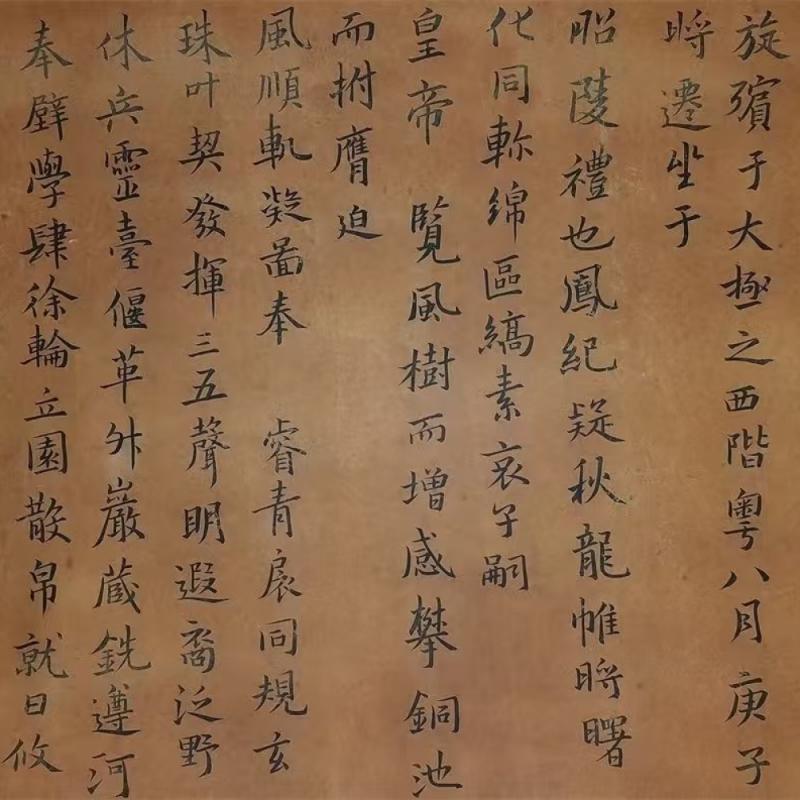 旋殯于大極之西階粵八月庚子
將遷坐于
昭陵禮也鳳紀疑秋龍帷將曙
化同軫綿區縞素哀子嗣
皇帝 覽風樹而增感攀銅池
而拊膺迫
風順軌凝圖奉 睿青扆同規玄
珠叶契發揮三五聲明遐裔泛野
休兵靈臺偃革升巖蔵銑遵河
奉璧學肆徐輪丘園散帛就日攸